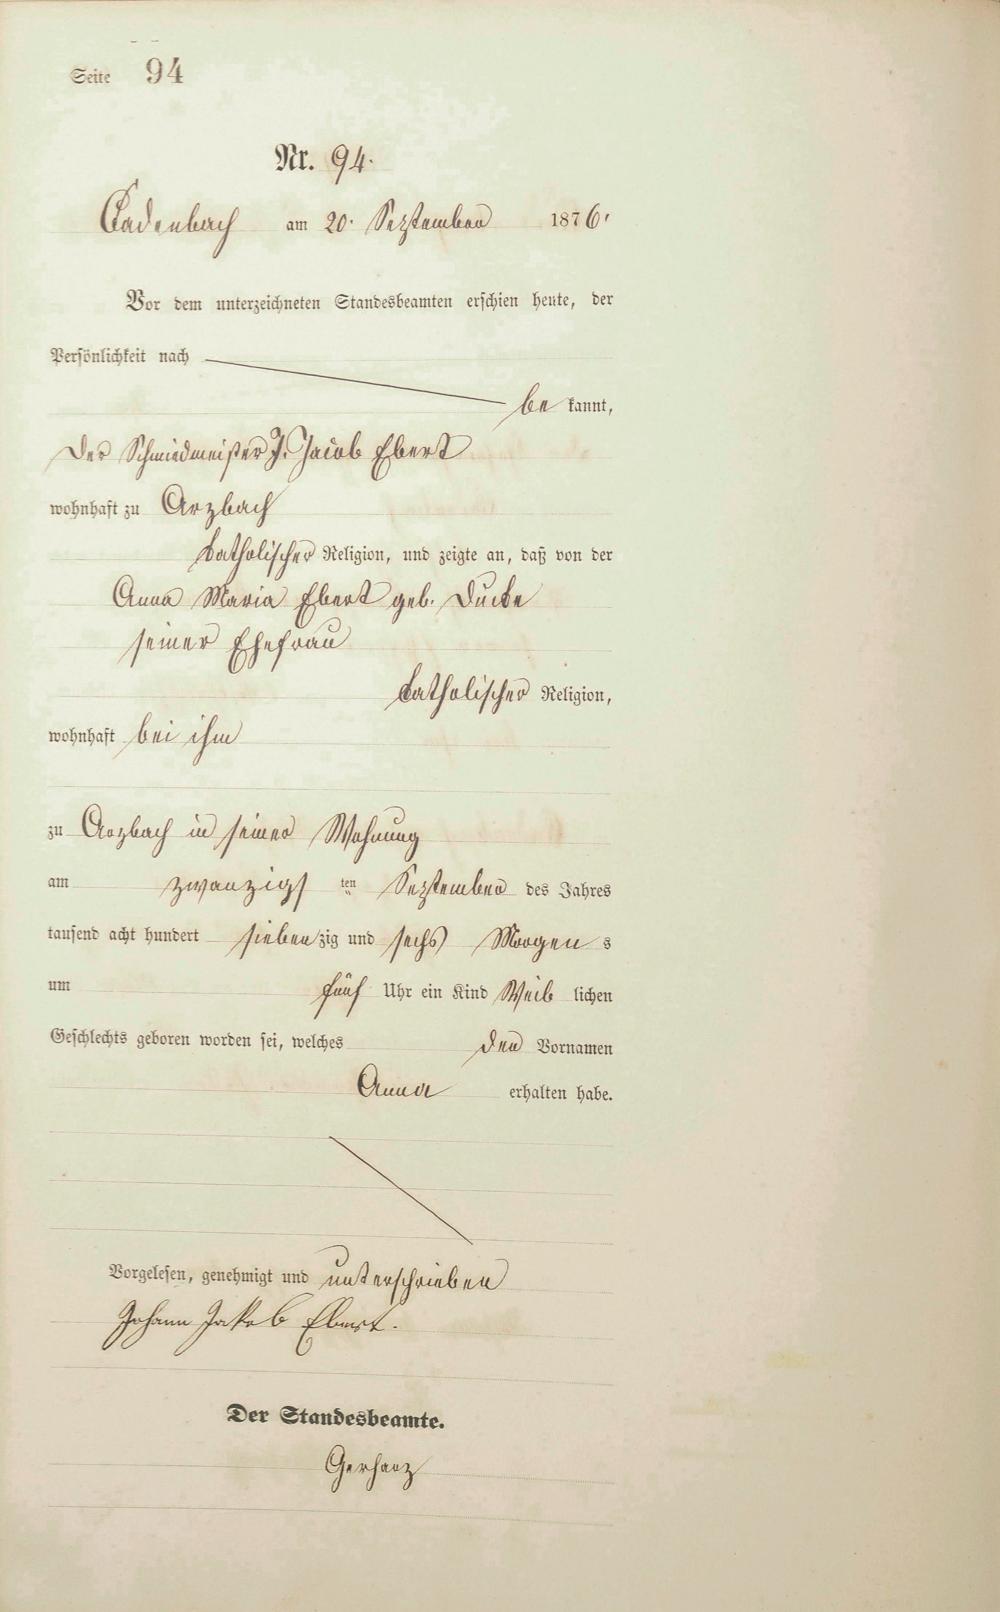 Seite 94
Nr. 94.
Cadenbach am 20. September 1876.
Vor dem unterzeichneten Standesbeamten erschien heute, der
Persönlichkeit nach
bekannt,
der Schmiedmeister J. Jacob Ebert
wohnhaft zu Arzbach
katholischer Religion, und zeigte an, daß von der
Anna Maria Ebert geb. Ducke
seiner Ehefrau
katholischer Religion,
wohnhaft bei ihm
zu Arzbach in seiner Wohnung
am zwanzigsten September des Jahres
tausend acht hundert siebenzig und sechs Morgens
um fünf Uhr ein Kind Weiblichen
Geschlechts geboren worden sei, welches den Vornamen
Anna erhalten habe.
Vorgelesen, genehmigt und unterschrieben
Johann Jakob Ebert.
Der Standesbeamte.
Gerharz